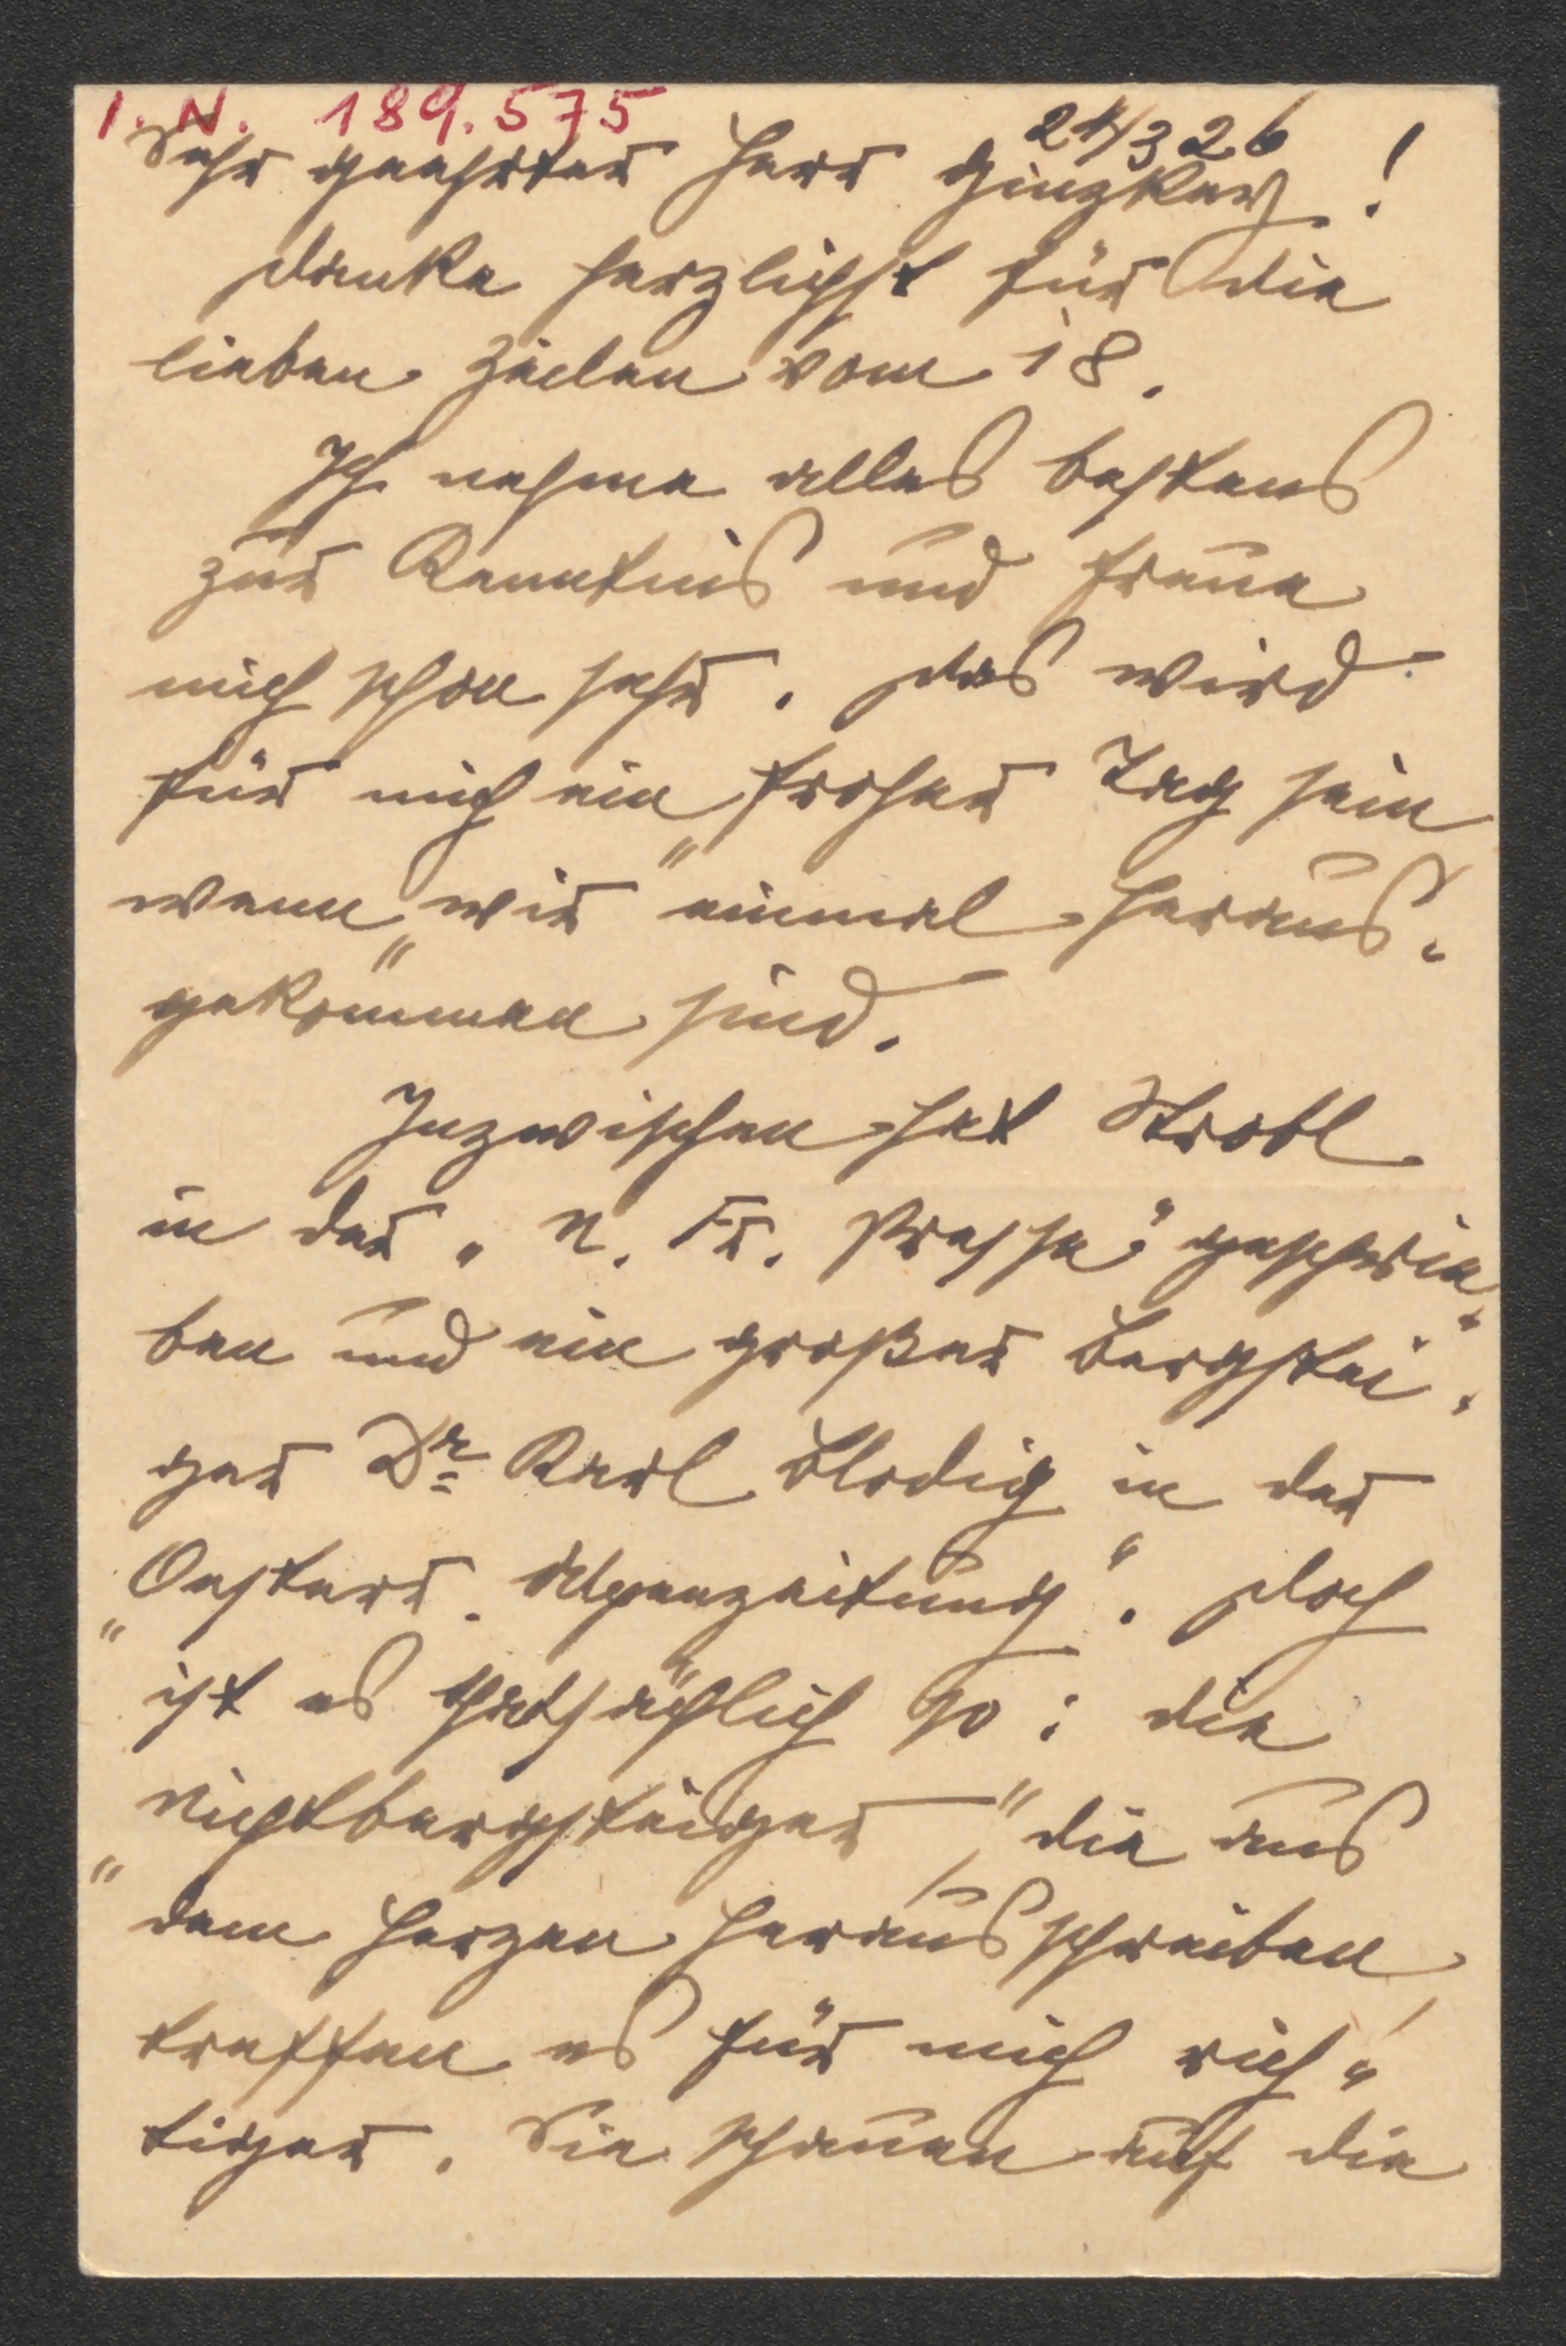 I. N. 189.575
21/3 26
Sehr geehrter Herr Ginzkey!
Danke herzlichst für die
lieben Zeilen vom 18.
Ich nehme alles bestens
zur Kenntnis und freue
mich schon sehr. Das wird
für mich ein froher Tag sein
wenn „wir“ einmal heraus-
gekommen sind.
Inzwischen hat Strobl
in der „N. Fr. Presse“ geschrie-
ben und ein großer Bergstei-
ger Dr Karl Blodig in der
„Oesterr. Alpenzeitung“. Doch
ist es thatsächlich so: die
„Nichtbergsteiger“, die aus
dem Herzen heraus schreiben,
treffen es für mich rich-
tiger. Sie schauen auf die